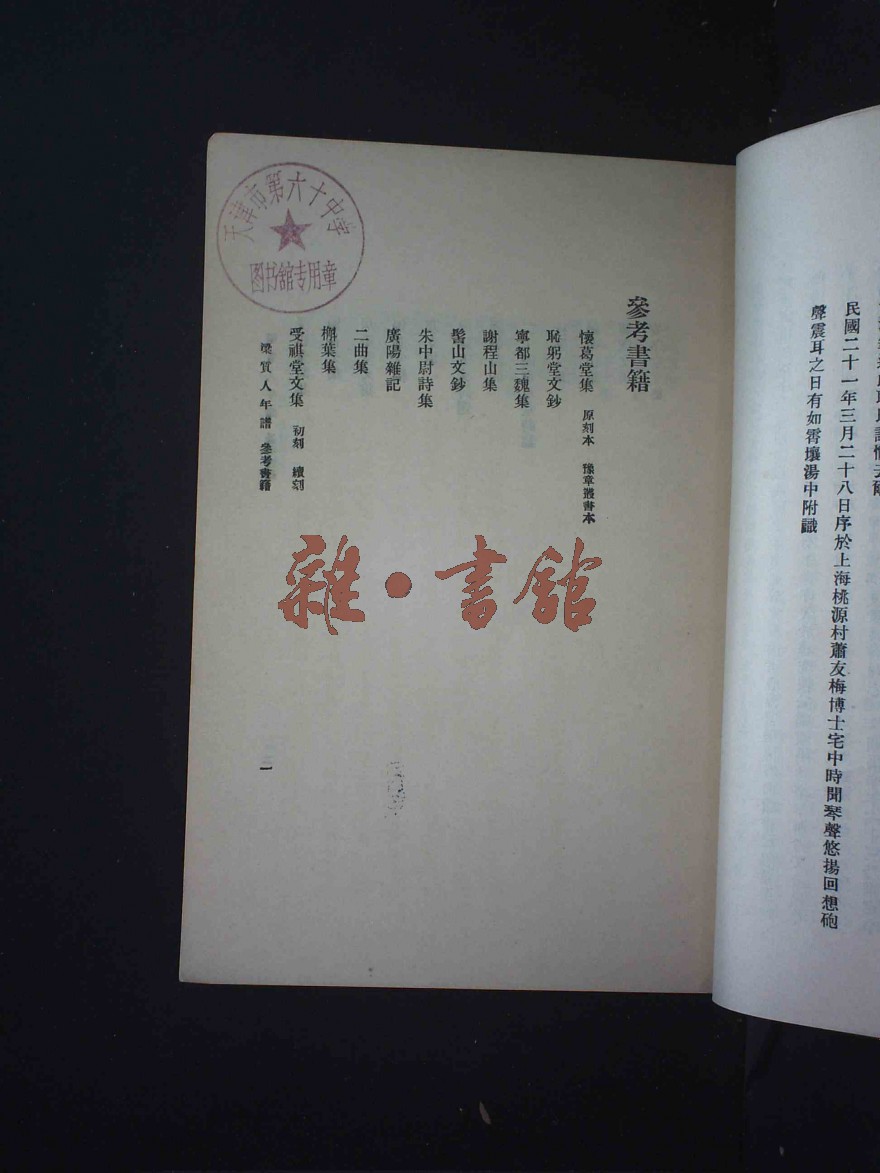 民國二十一年三月二十八日序於上海桃源村蕭友梅博士宅中時聞琴聲悠揚回想砲
聲震耳之日有如霄壤湯中附識
參考書籍
懷葛堂集 原刻本 豫章叢書本
恥躬堂文鈔
寧都三魏集
謝程山集
髻山文鈔
朱中尉詩集
廣陽雜記
二曲集
槲葉集
受祺堂文集 初刻 續刻
梁質人年譜 參考書籍
一
天津市第六十中学
图书館专用章
雜·書館